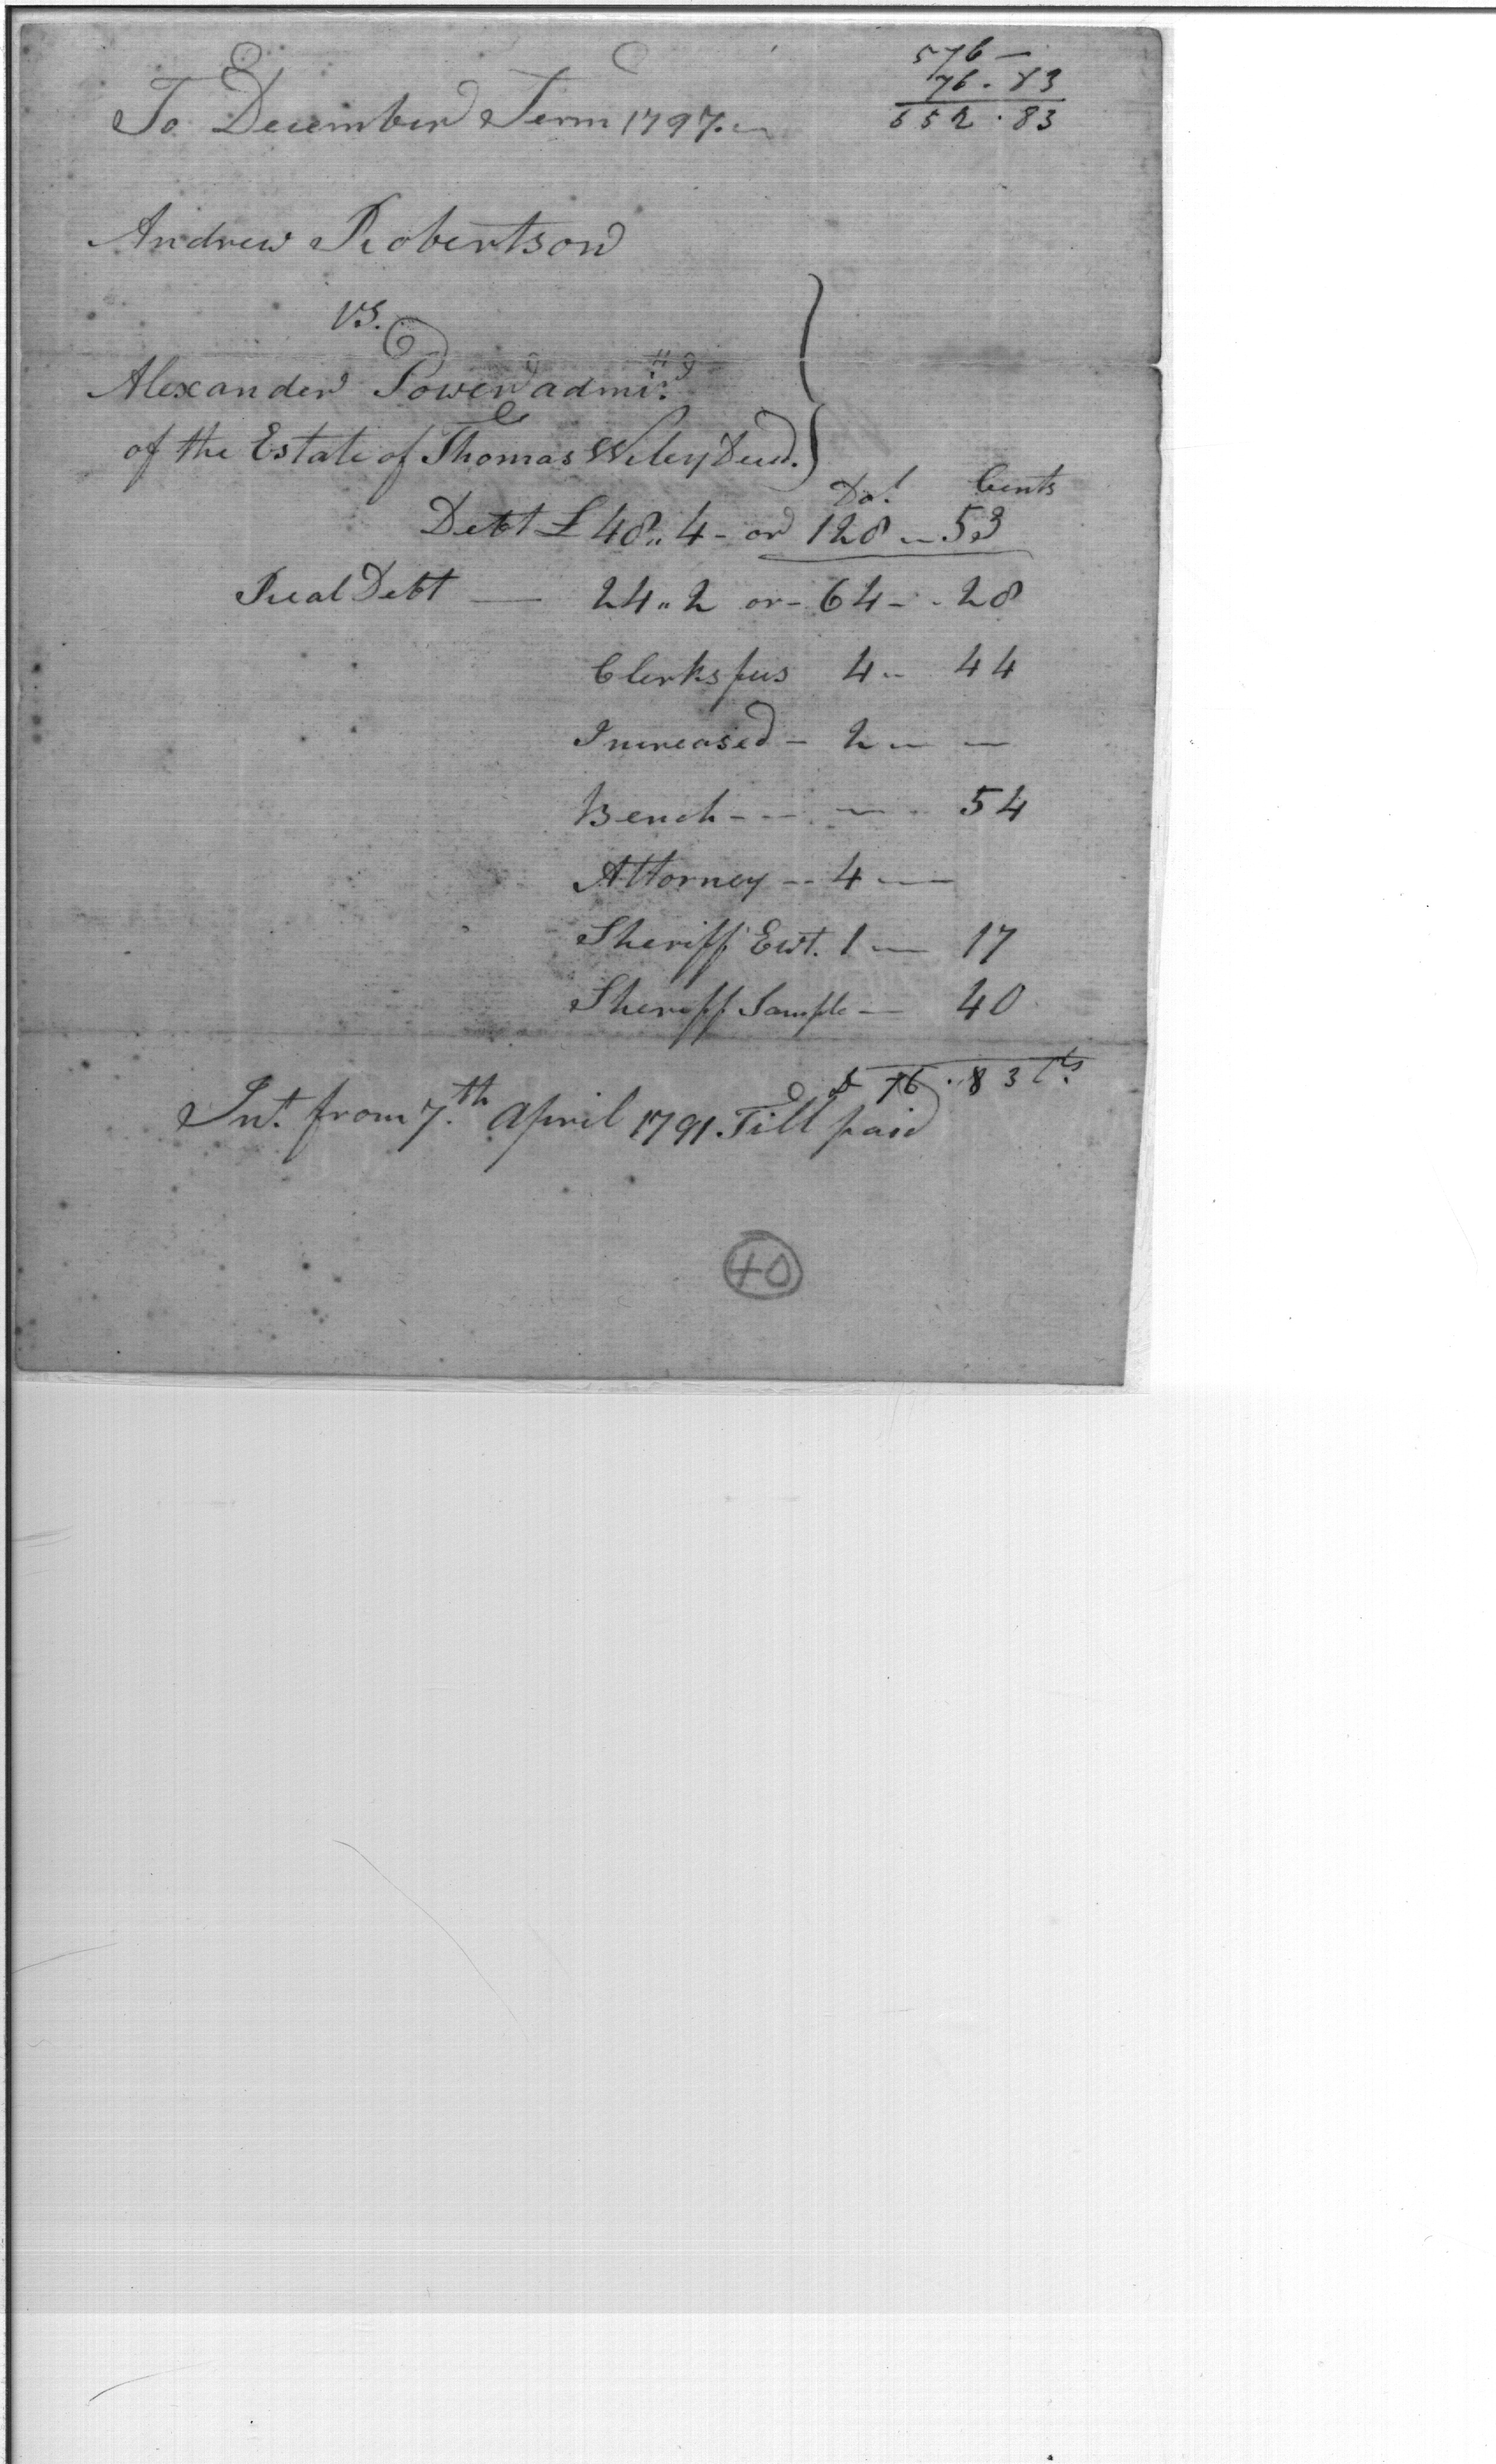 576 —
76 . 83
652 . 83
To December Term 1797.
Andrew Robertson
vs.
Alexander Power admir.
of the Estate of Thomas Wiley Decd.
Dol. Cents
Debt £ 48 .. 4 - or 128 — 53
Real Debt — 24 .. 2 or - 64 - - 28
Clerks fees 4 .. 44
Increased - 2 — —
Bench - - - — 54
Attorney - - 4 — —
Sheriff Ewt. 1 — 17
Sheriff Sample — 40
D 76 . 83 Cts.
Int. from 7.th April 1791. Till paid
40